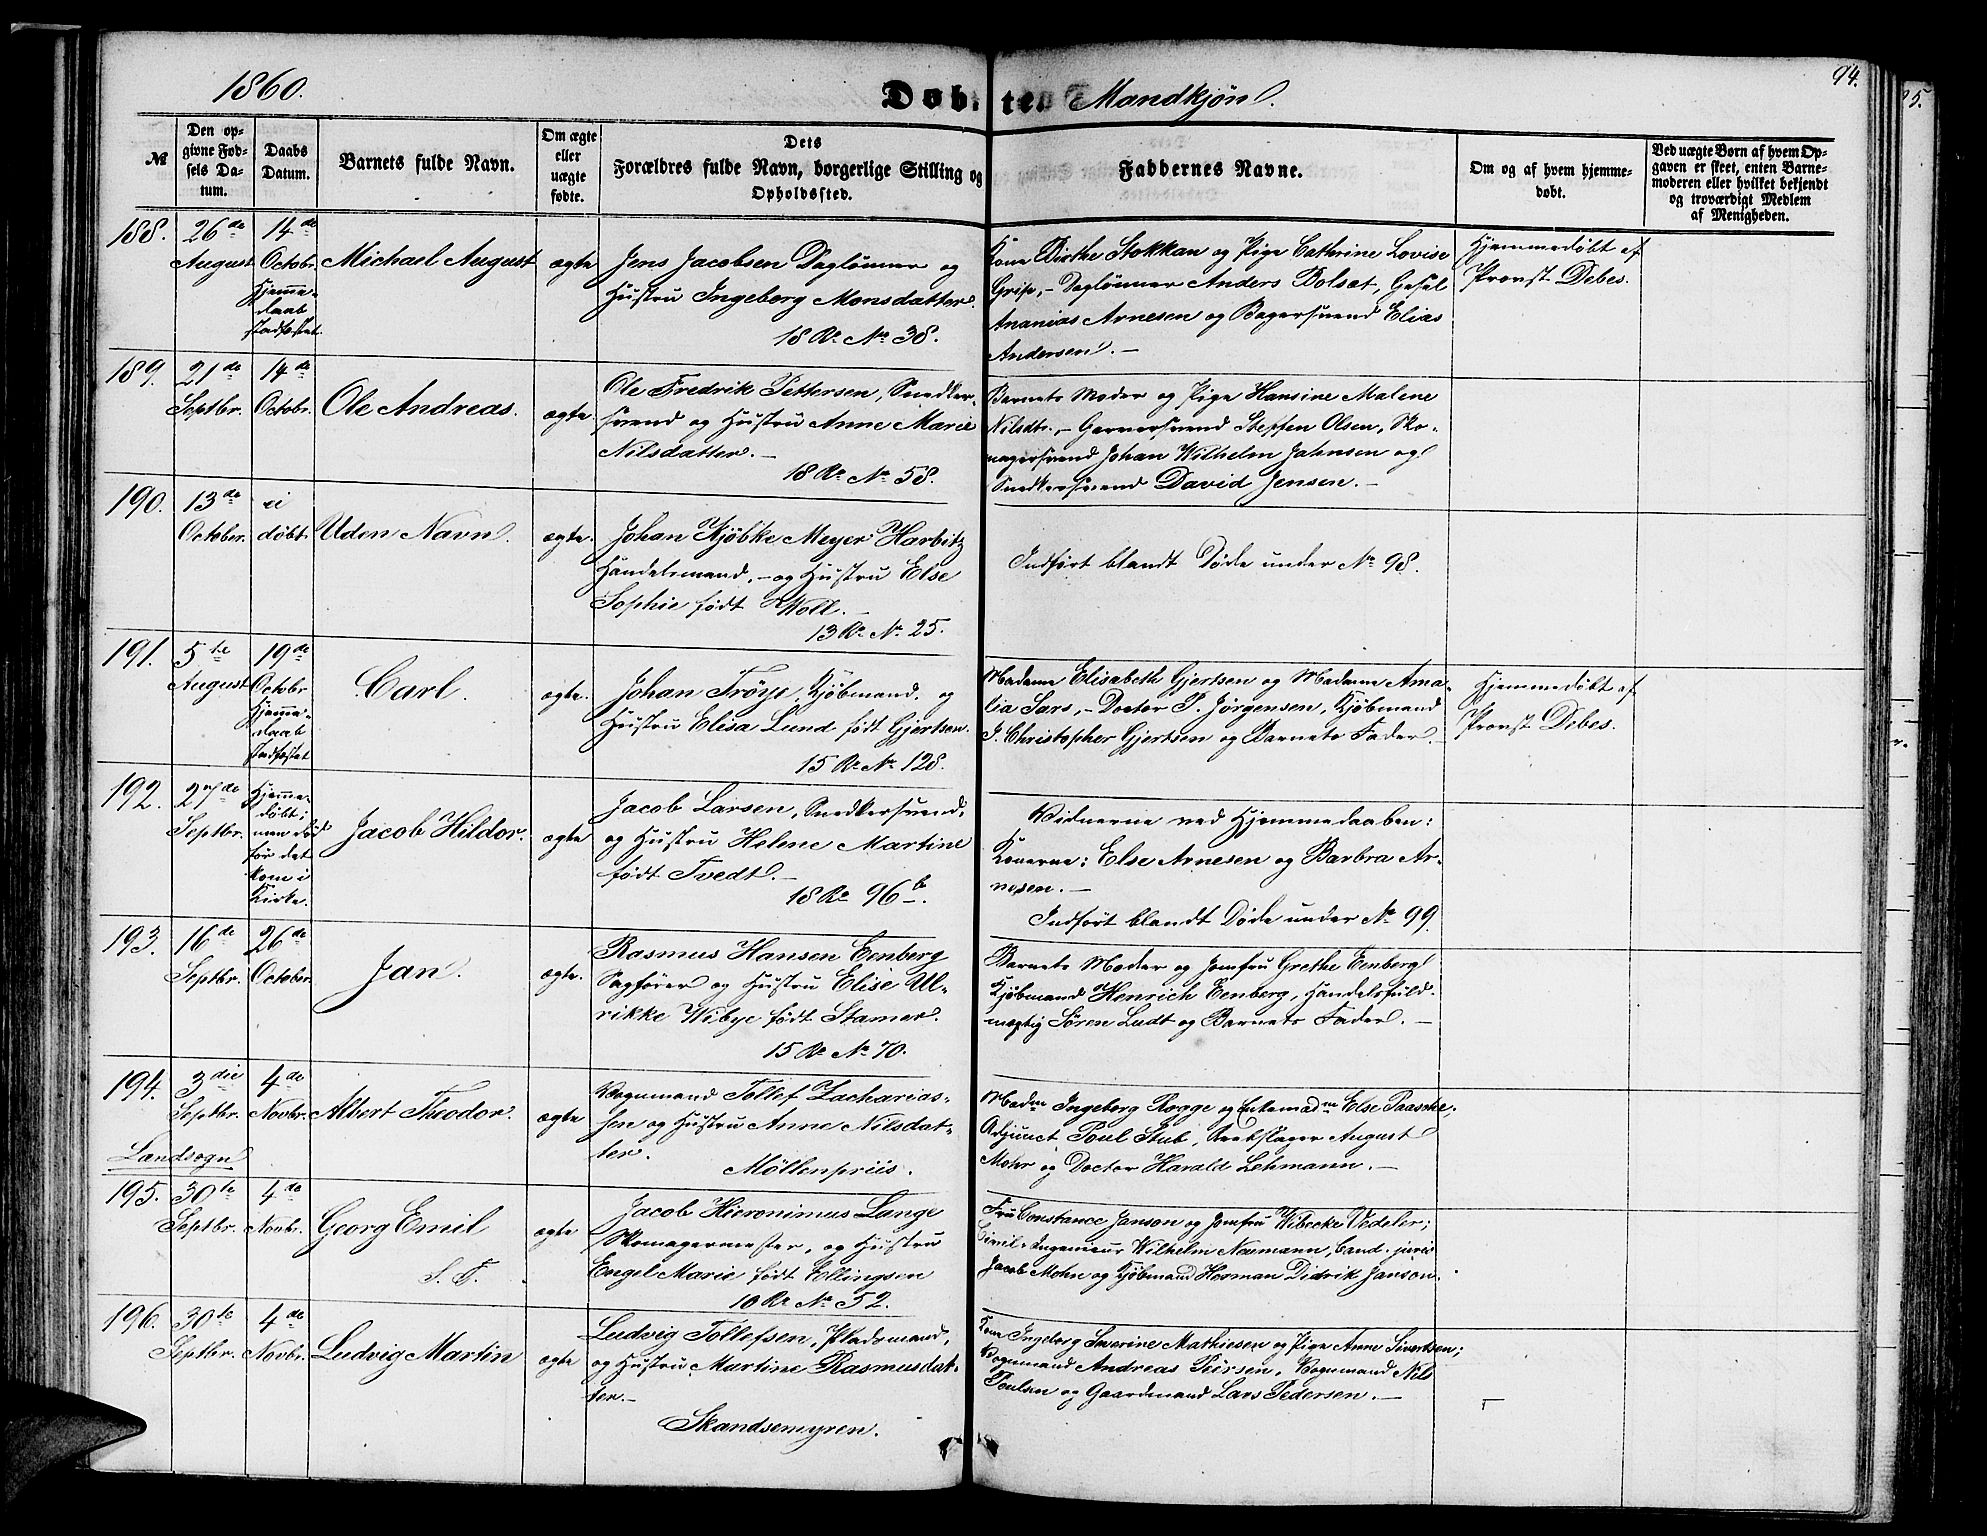 1860.
Døbte Mandkjøn.
94.
25.
№
Den op-
givne Fød-
sels Da-
tum.
Daabs
Datum.
Barnets fulde Navn.
Om ægte
eller
uægte
fødte.
Dets
Forældres fulde Navn, borgerlige Stilling og
Opholdssted.
Faddernes Navne.
Om og af hvem hjemme-
døbt.
Ved uægte Børn af hvem Op-
gaven er skeet, enten Barne-
moderen eller hvilket bekjendt
og troværdigt Medlem
af Menigheden.
188.
26de
August
14de
Octobr.
Hjemme-
daab
stadfæstet
Michael August
ægte
Jens Jacobsen Daglønner og
Hustru Ingeborg Monsdatter.
18 R. No 38.
Kone Birthe Stokkan og Pige Cathrine Lovise
Grip, - Daglønner Anders Bolsæt, Gesel
Ananias Arnesen og Bagersvend Elias
Andersen. -
Hjemmedøbt af
Provst Debes.
189.
21de
Septbr.
14de
Octobr.
Ole Andreas.
ægte.
Ole Fredrik Pettersen, Snedker-
svend og Hustru Anne Marie
Nilsdatter. -
18 R. No 58.
Barnets Moder og Pige Hansine Malene
Nilsdtr. - Garversvend Steffen Olsen, Sko-
magersvend Johan Wilhelm Jahnsen og
Snedkersvend David Jensen. -
190.
13de
October.
ei
døbt.
Uden Navn.
ægte.
Johan Kjøbke Meyer Harbitz
Handelsmand, - og Hustru Else
Sophie født Woll. -
13 R. No. 25.
Indført blandt Døde under No 98.
191.
5te
August
19de
Octobr.
Hjemme-
daab
stadfæstet
Carl.
ægte.
Johan Frøys, Kjøbmand, og
Hustru Elisa Lund født Gjertsen.
15 R. No 128.
Madame Elisabeth Gjertsen og Madame Ama-
lia Sars, - Doctor P. Jørgensen, Kjøbmand
J. Christopher Gjertsen og Barnets Fader. -
Hjemmedøbt af
Provst Debes.
192.
27de
Septbr.
Hjemme-
døbt;
men død
før det
kom i
Kirke.
Jacob Hildor.
ægte
Jacob Larsen, Snedkersvend,
og Hustru Helene Martine
født Tvedt. -
18 R. 96 b.
Vidnerne ved Hjemmedaaben:
Konerne: Else Arnesen og Barbra Ar-
nesen. -
Indført blandt Døde under No 99.
193.
16de
Septbr.
26de
October.
Jan.
ægte.
Rasmus Hansen Eenberg
Sagfører og Hustru Elise Ul-
rikke Wibye født Stamer.
15 R. No 70.
Barnets Moder og Jomfru Grethe Eenberg
Kjøbmand Henrich Eenberg, Handelsfuld-
mægtig Søren Ludt og Barnets Fader. -
194.
3die
Septbr.
4de
Novbr.
Landsogn
Albert Theodor.
ægte
Vognmand Tollef Zacharias-
sen og Hustru Anne Nilsdat-
ter.
Møllenpriis.
Madm Ingeborg Rogge og Enkemadm Else Paasche;
Adjunct Poul Stub, Reebslager August
Mohr og Doctor Harald Lehmann. -
195.
30te
Septbr.
4de
Novbr.
Georg Emil
S. T.
ægte
Jacob Hieronimus Lange
Skomagermester, og Hustru
Engel Marie født Ellingsen
10 R. No 52.
Fru Constance Janson og Jomfru Wibecke Vedeler;
Civil-Ingenieur Wilhelm Naumann, Cand. juris
Jacob Mohn og Kjøbmand Herman Didrik Janson.
196.
30te
Septbr.
4de
Novbr.
Ludvig Martin
ægte
Ludvig Tollefsen, Pladsmand,
og Hustru Martine Rasmusdat-
ter. -
Skandsemyren.
Kone Ingeborg Severine Mathiesen og Pige Anne Sivertsen;
Vognmand Andreas Peersen, Vognmand Nils
Poulsen og Gaardmand Lars Pedersen. -